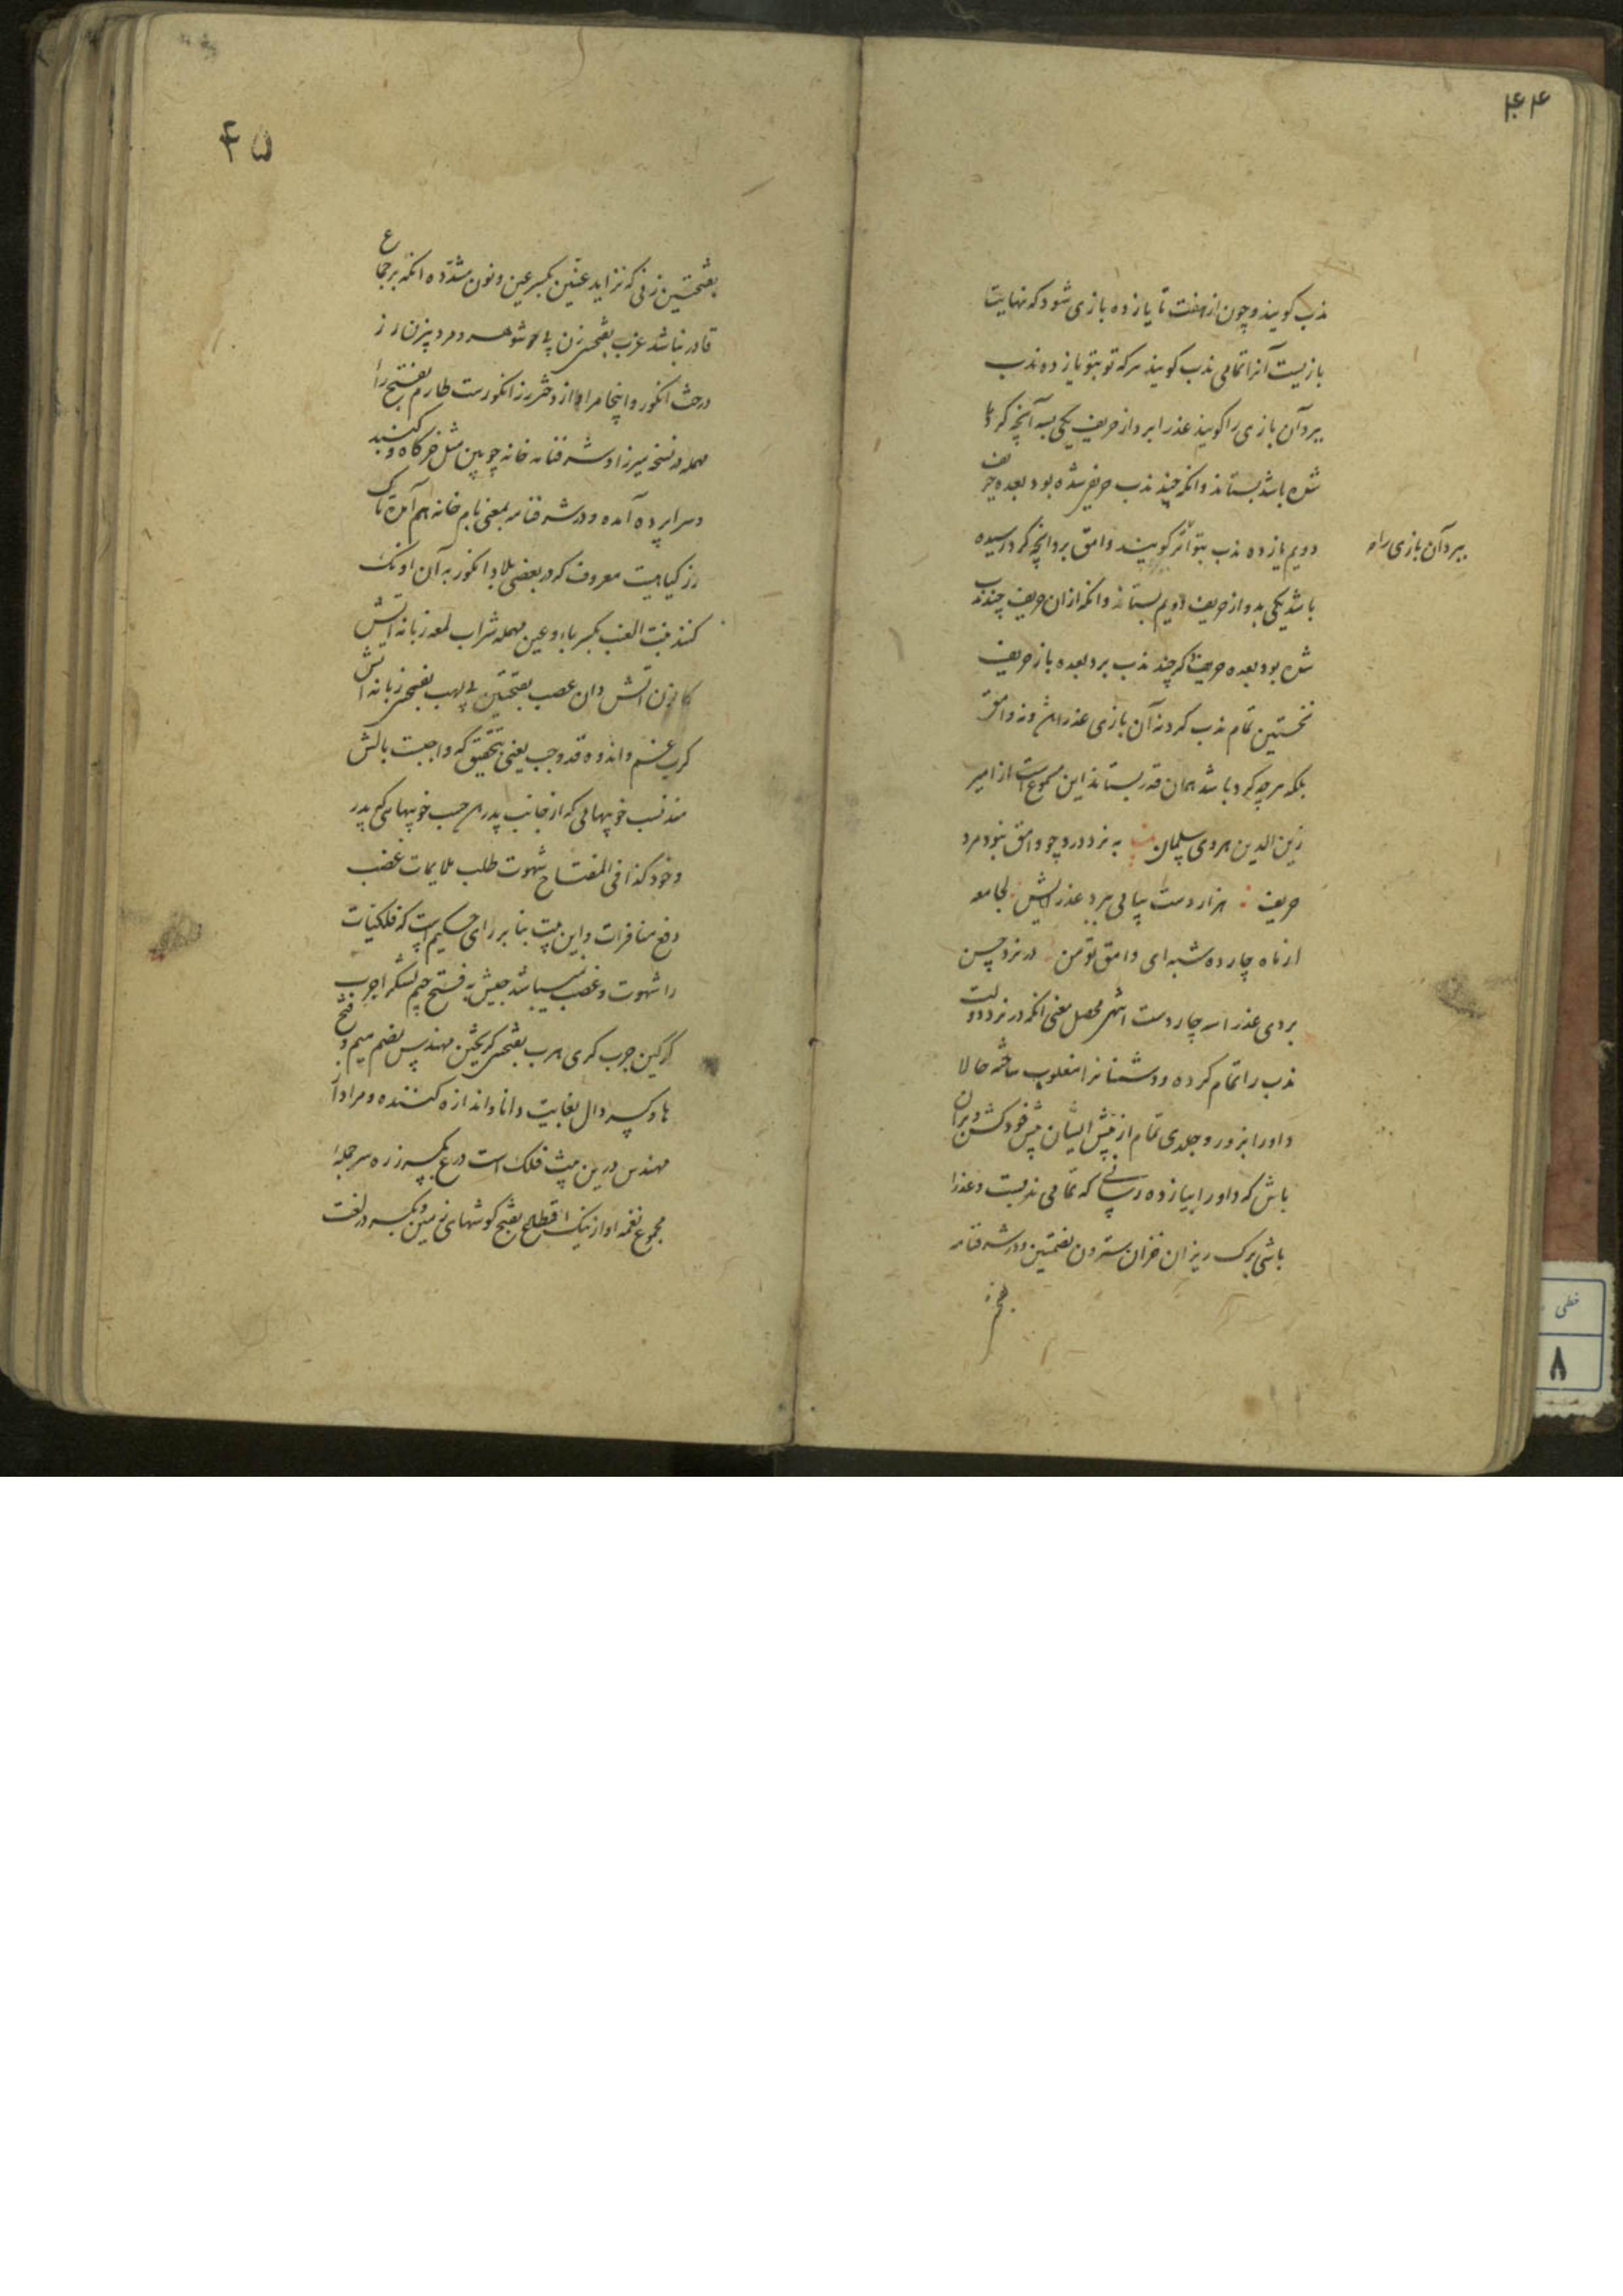 ۴۴
ندب کویند و چون از هفت تا یازده بازی شود که نهایت
بازیست آنرا تمامی ندب کویند هرکه تو بتو یازده ندب
ببرد آن بازی را کویند عذرا برد از حریف یکی بسه آنچه کرو
شده باشد بستاند و انکه چند ندب حریفی شده بود بعده حریف
دویم یازده ندب بتواتر کویند وامق برد آنچه کرو رسیده
ببرد آن بازی را
باشد یکی بدو از حریف دویم بستاند و انکه ازان حریف چند ندب
شده بود بعده حریف اکر چند ندب برد بعده باز حریف
نخستین تمام ندب کرد نه آن بازی عذرا شود نه وامق
بلکه هرچه کرو باشد همان قدر بستاند این مسموع است از امیر
زین الدین هروی سلمان به نرد درد چو وامق نبود مرد
حریف هزار دست پیاپی ببرد عذرایش لجامعه
ای ماه چارده شبه ای وامق تو من در نرد حسن
بردی عذرا سه چار دست اشهر محصل معنی انکه در نرد دولت
ندب را تمام کرده و دشمنانرا مغلوب ساخته حالا
داو را بزور و جلدی تمام از پیش ایشان پیش خود کش و بران
باش که داو را بیازده رسانی که تمامی ندبست و عذرا
باشی برک ریزان خزان سترون بضمتین و در شرفنامه
بفتحتین زنی که نزاید عنّین بکسر عین و نون مشدّده انکه بر جماع
۴۵
قادر نباشد عزب بفتحتین زن بی شوهر و مرد بی زن رز
درخت انکور و اینجا مراد از دختر رز انکورست طارم بفتح را
مهمله در نسخه میرزا و شرفنامه خانه چوبین مثل خرکاه و کنبد
و سراپرده آمده و در شرفنامه بمعنی بام خانه هم آمده تاک
رز کیاهیست معروف که در بعضی بلاد انکور به آن اونک
کنند بنت العنب بکسر باء و عین مهمله شراب لمعه زبانه آتش
کانون آتش دان عصب بفتحتین پی لهب بفتحتین زبانه آتش
کرب غم و اندوه قد وجب یعنی بتحقیق که واجبست بالش
مسند نسب خوبیهایی که از جانب پدر رسد حسب خوبیهای پدر
و خود کذا فی المفتاح شهوت طلب ملایمات غضب
دفع منافرات و این بیت بنا بر رای حکیم است که فلکیات
را شهوت و غضب نمیباشد جیش به فتح جیم لشکر اجرب
کرکین جرب کری هرب بفتحتین کریختن مهندس بضم میم و فتح
ها و کسر دال بغایت دانا و اندازه کننده و مراد از
مهندس درین بیت فلک است درع بکسر زره سر جمله
مجموع نغمه آواز نیک اقطاع بفتح کوشهای زمین و بکسر در لغت